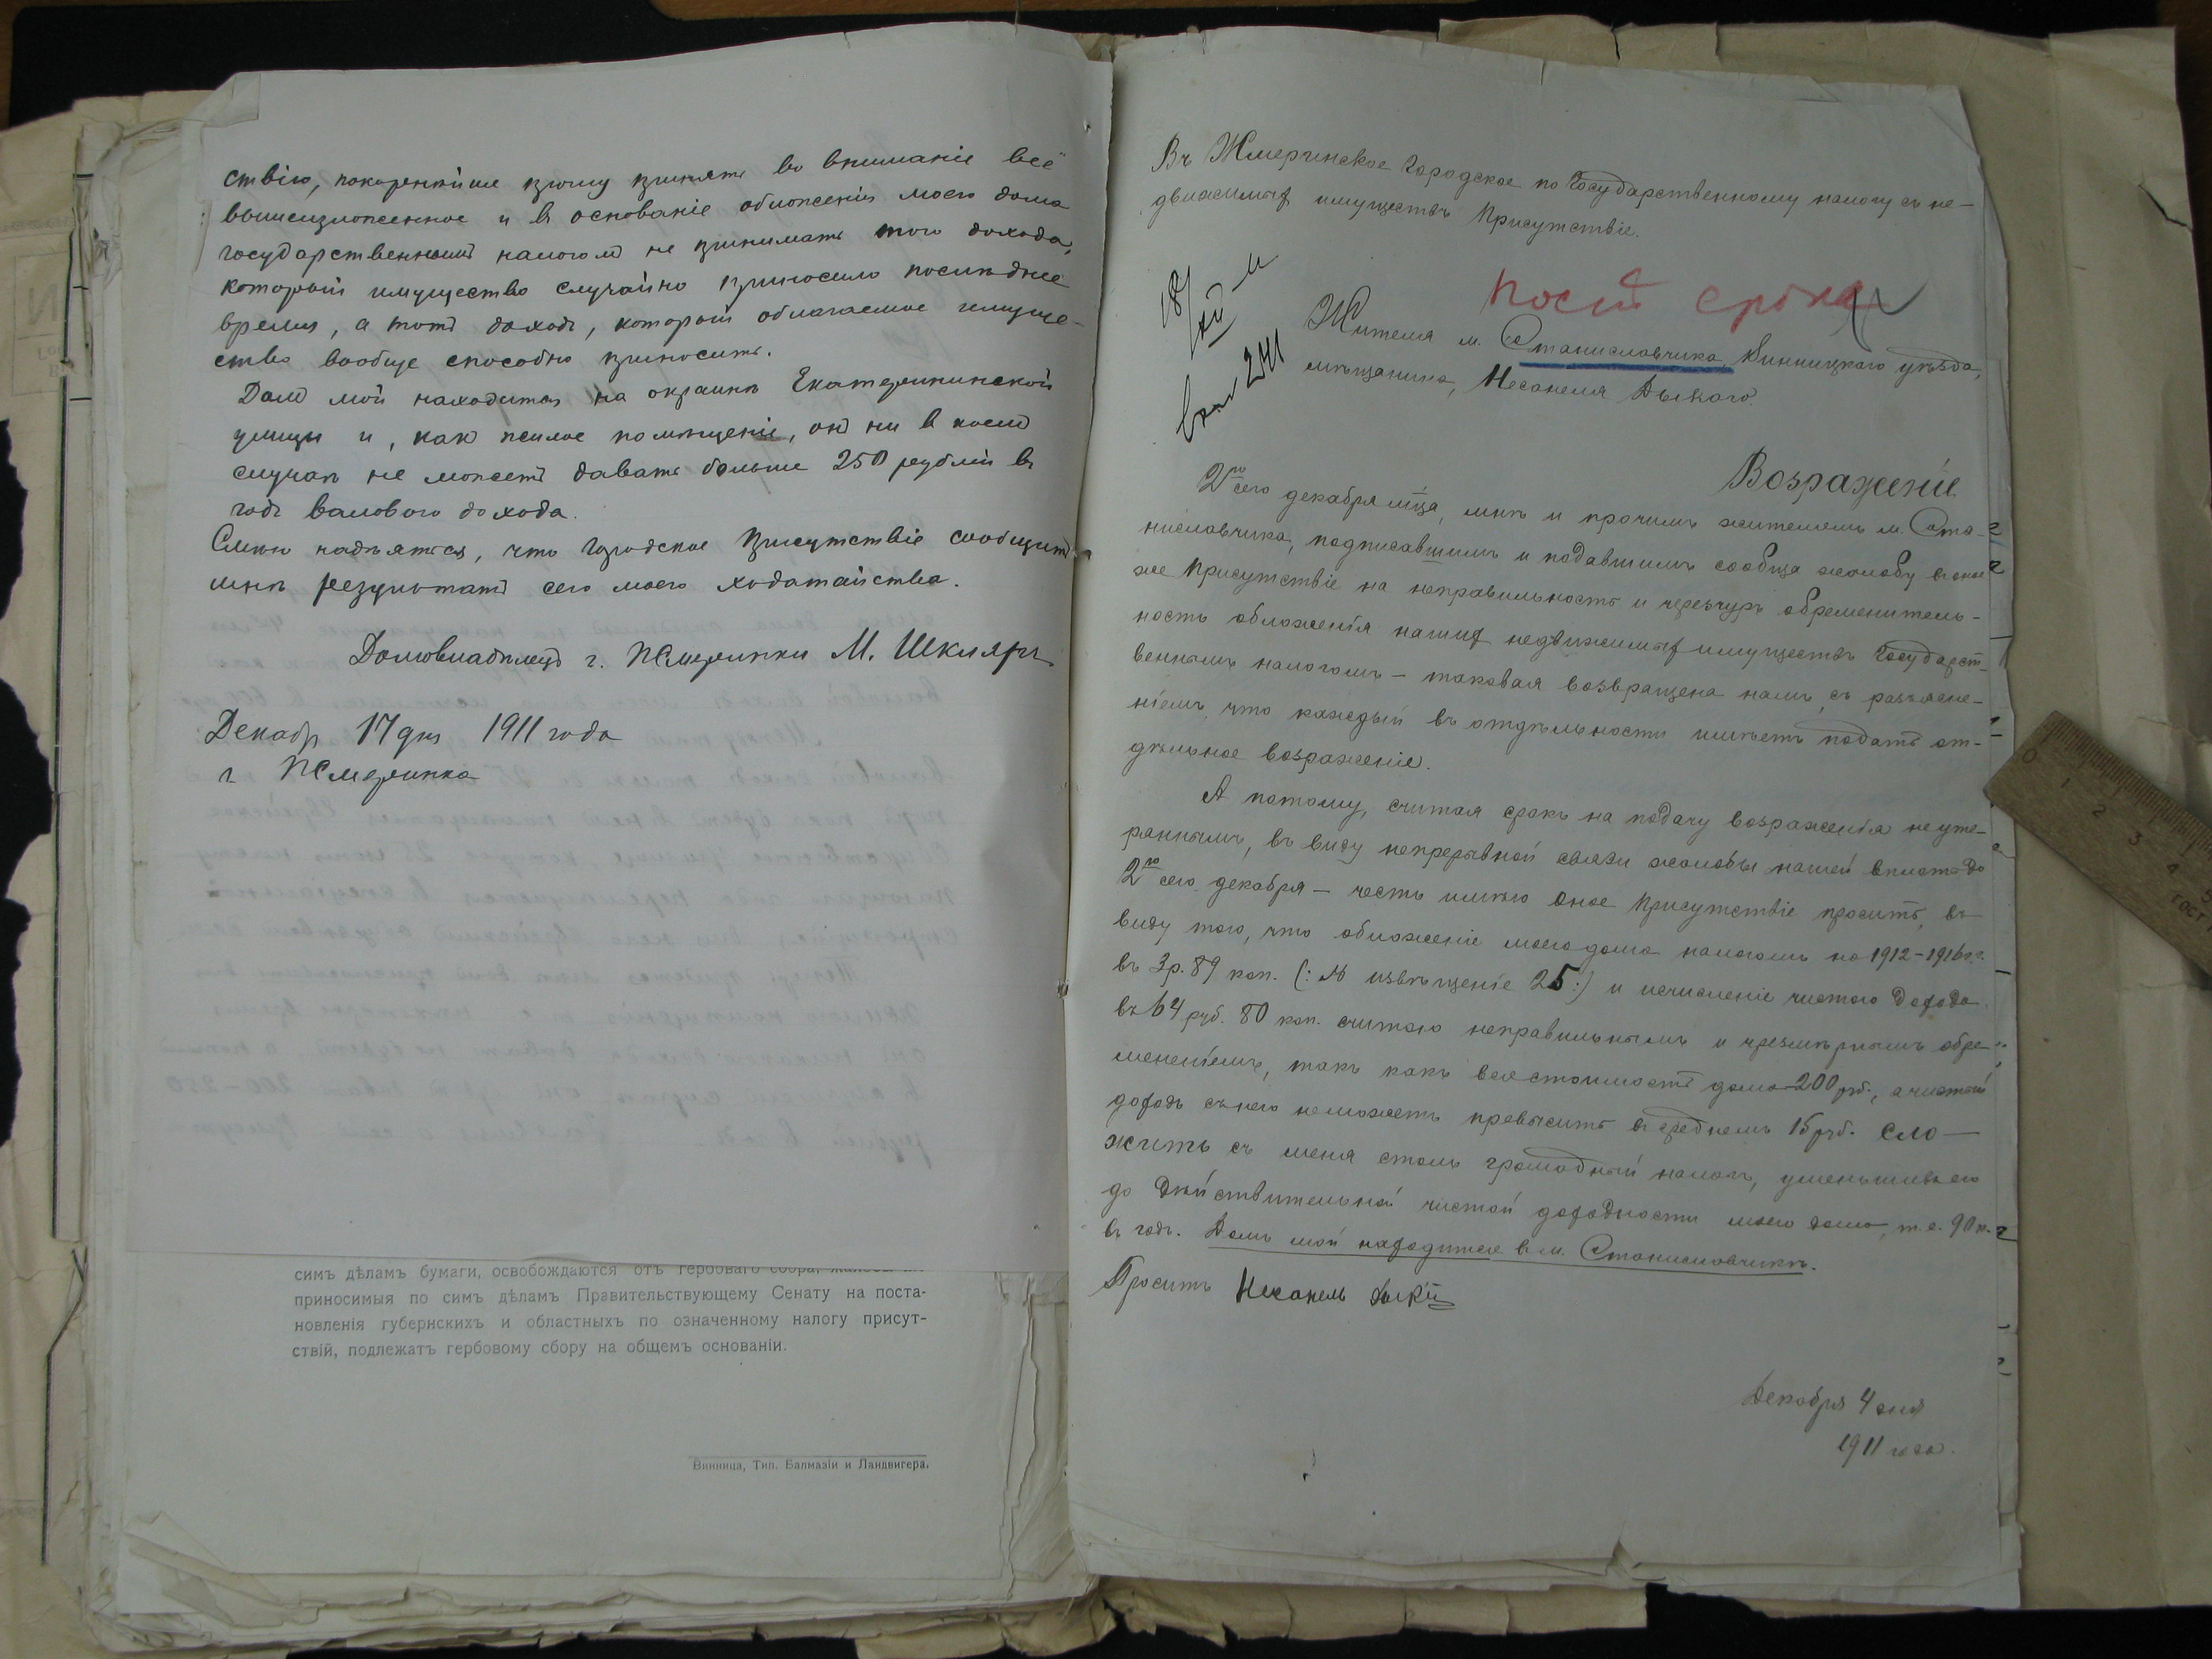 ствію, покорнѣйше прошу принять во вниманіе всё
вышеизложенное и в основаніе обложенія моего дома
государственным налогом не принимать того дохода,
который имущество случайно приносило последнее
время, а тотъ доходъ, который облагаемое имуще-
ство вообще способно приносить.
Дом мой находится на окраинѣ Екатерининской
улицы и, как жилое помѣщеніе, он ни в коем
случаѣ не может давать больше 250 рублей въ
годъ валового дохода.
Смѣю надѣяться, что Городское Присутствіе сообщитъ
мнѣ результат сего моего ходатайства.
Домовладѣлец г. Жмеринки М. Шкляръ
Декабр 17 дня 1911 года
г Жмеринка
симъ дѣламъ бумаги, освобождаются отъ гербоваго сбора,
приносимыя по симъ дѣламъ Правительствующему Сенату на поста-
новленія губернскихъ и областныхъ по означенному налогу присут-
ствій, подлежатъ гербовому сбору на общемъ основаніи.
Винница, Тип. Балмазіи и Ландвигера.
Въ Жмеринское Городское по Государственному налогу съ не-
движимыхъ имуществъ Присутствіе.
После срока
18/XII 11
Вход 241
Жителя м. Станиславчика Винницкаго уѣзда,
мѣщанина, Несанеля Дыкаго.
Возраженіе
2го сего декабря мѣца, мнѣ и прочимъ жителемъ м. Ста-
ниславчика, подписавшимъ и подавшимъ сообща жалобу въ оное
же Присутствіе на неправильность и черезчуръ обременитель-
ность обложенія нашихъ недвижимыхъ имуществъ Государст-
веннымъ налогомъ – таковая возвращена намъ съ разъясне-
ніемъ, что каждый въ отдѣльности имѣетъ подать от-
дѣльное возраженіе.
А потому, считая срокъ на подачу возраженія не уте-
раннымъ, въ виду непрерывной связи жалобы нашей вплоть до
2го сего декабря – честь имѣю оное Присутствіе просить, въ
виду того, что обложеніе моего дома налогомъ на 1912-1916 г.г.
въ 3 р. 89 коп. (: № извѣщеніе 25 :) и исчисленіе чистаго дохода
въ 64 руб. 80 коп. считаю неправильнымъ и чрезмѣрнымъ обре-
мененіемъ, такъ какъ вся стоимость дома 200 руб., а чистый
доходъ съ него не можетъ превысить въ среднемъ 15 руб. сло-
жить съ меня столь громадный налогъ, уменьшивъ его
до дѣйствительной чистой доходности моего дома, т.е. 90 к.
въ годъ. Домъ мой находится в м. Станиславчикѣ.
Проситъ Несанель Дыкій
Декабря 4 дня
1911 года.